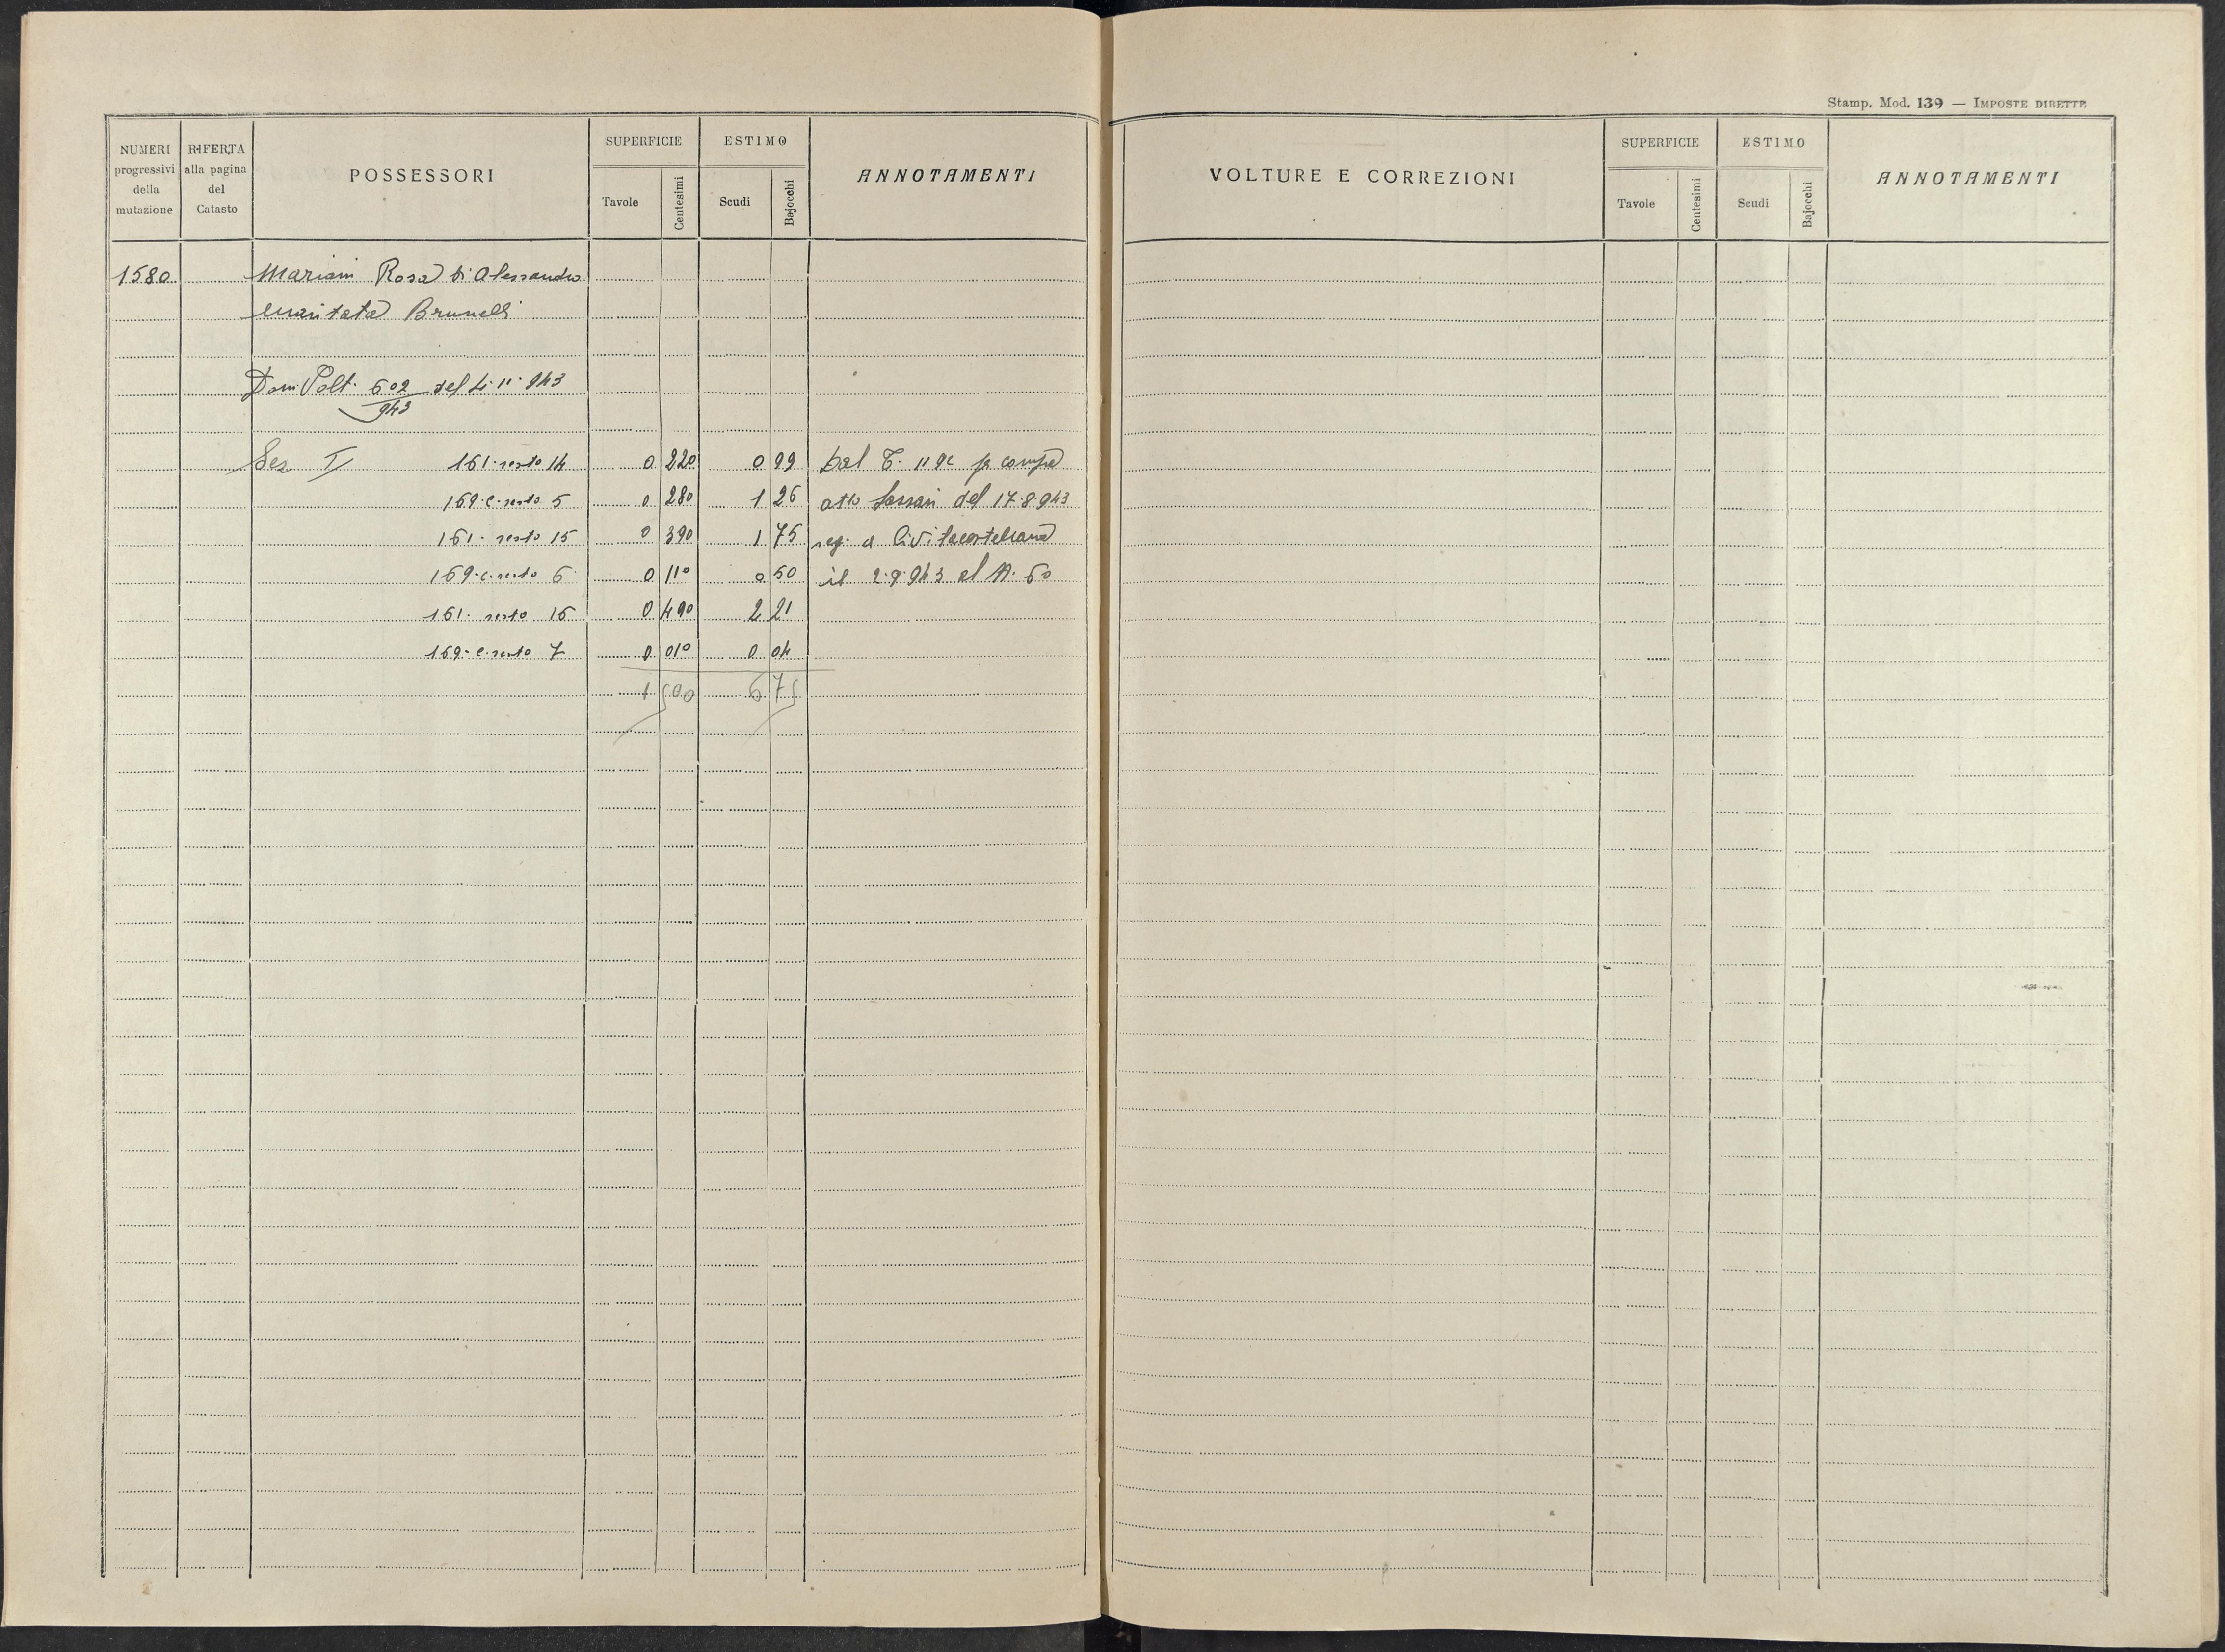 Stamp. Mod. 139 — IMPOSTE DIRETTE
NUMERI progressivi della mutazione
RIFERTA alla pagina del Catasto
POSSESSORI
SUPERFICIE
Tavole
Centesimi
ESTIMO
Scudi
Bajocchi
ANNOTAMENTI
VOLTURE E CORREZIONI
SUPERFICIE
Tavole
Centesimi
ESTIMO
Scudi
Bajocchi
ANNOTAMENTI
1580 Mariani Rosa di Alessandro
maritata Brunelli
Dom Volt. 602/943 del 4·11·943
Sez I 161·resto 14 0 220 0 99 Dal C. 1192 per compª
169·c·resto 5 0 280 1 26 atto Sassari del 17·8·943
161·resto 15 0 390 1 75 reg. a Civitacastellana
169·c·resto 6 0 110 0 50 il 2·9·943 al N. 60
161·resto 16 0 490 2 21
169·c·resto 7 0 010 0 04
1 500 6 75